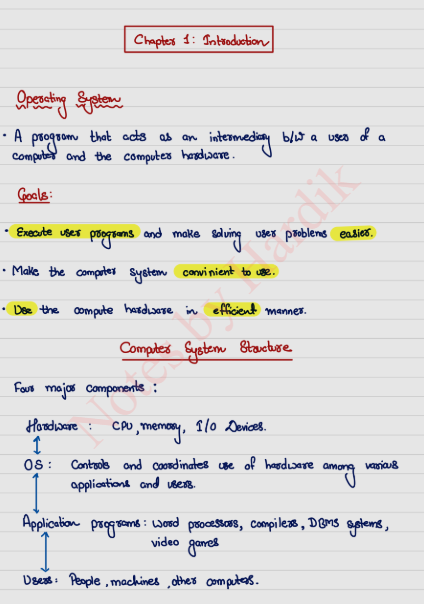 Chapter 1: Introduction
Operating System
• A program that acts as an intermediary b/w a user of a
computer and the computer hardware.
Goals:
• Execute user programs and make solving user problems easier.
• Make the computer system convinient to use.
• Use the compute hardware in efficient manner.
Computer System Structure
Four major components :
Hardware : CPU, memory, I/O Devices.
OS : Controls and coordinates use of hardware among various
applications and users.
Application programs : Word processors, compilers, DBMS systems,
video games
Users : People, machines, other computers.
Notes by Hardik